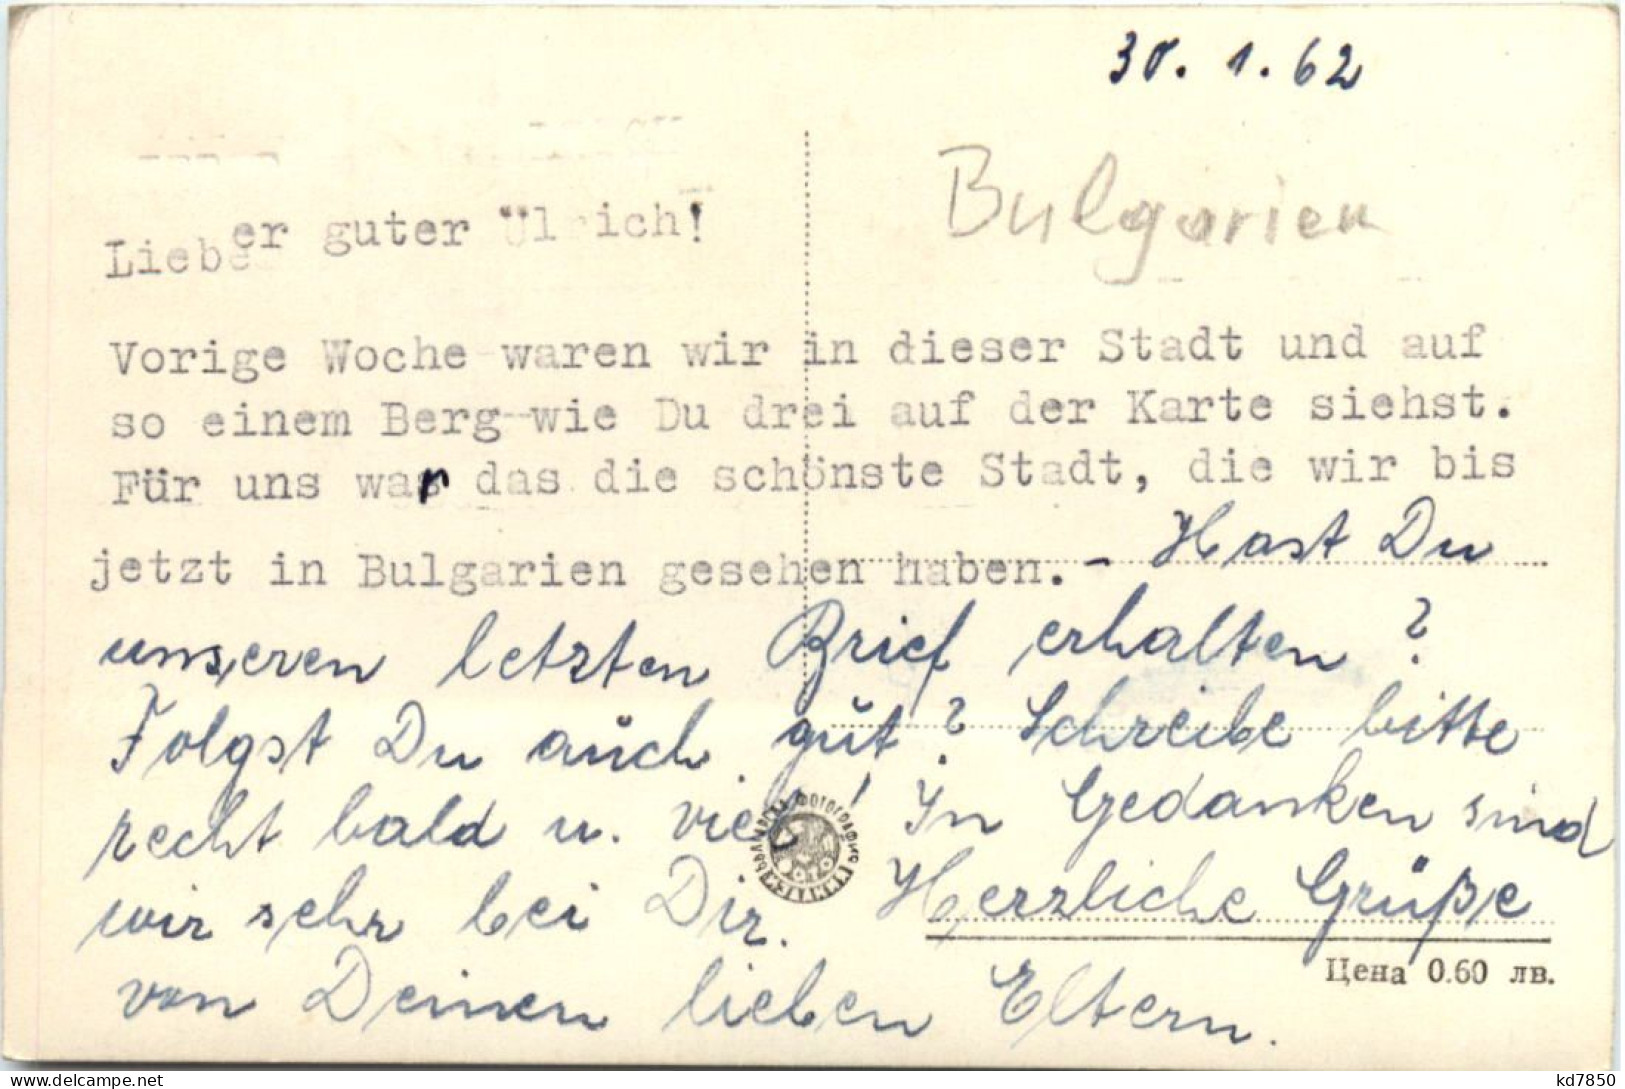 30. 1. 62
Bulgarien
Lieber guter Ulrich!
Vorige Woche waren wir in dieser Stadt und auf
so einem Berg wie Du drei auf der Karte siehst.
Für uns war das die schönste Stadt, die wir bis
jetzt in Bulgarien gesehen haben. - Hast Du
unseren letzten Brief erhalten?
Folgst Du auch gut? Schreibe bitte
recht bald u. viel! In Gedanken sind
wir sehr bei Dir. Herzliche Grüße
von Deinen lieben Eltern.
Цена 0.60 лв.
kd7850